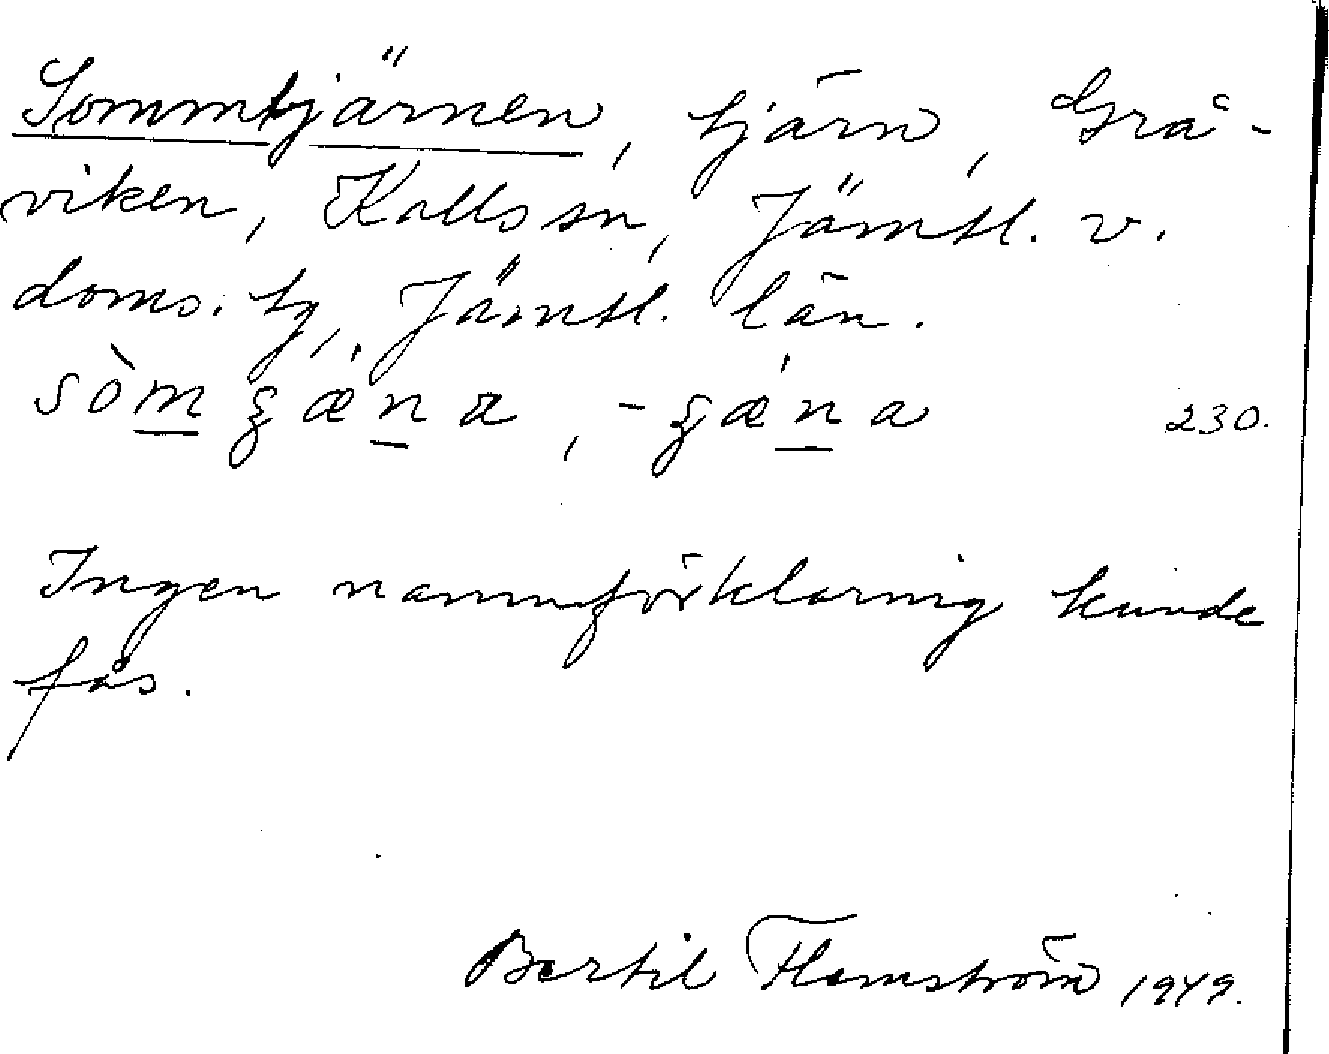 Sommtjärnen, tjärn, Grå-
viken, Kalls sn, Jämtl. v.
doms. tj, Jämtl. län.
230.
Ingen namnförklaring kunde
fås.
Bertil Flemström 1949.